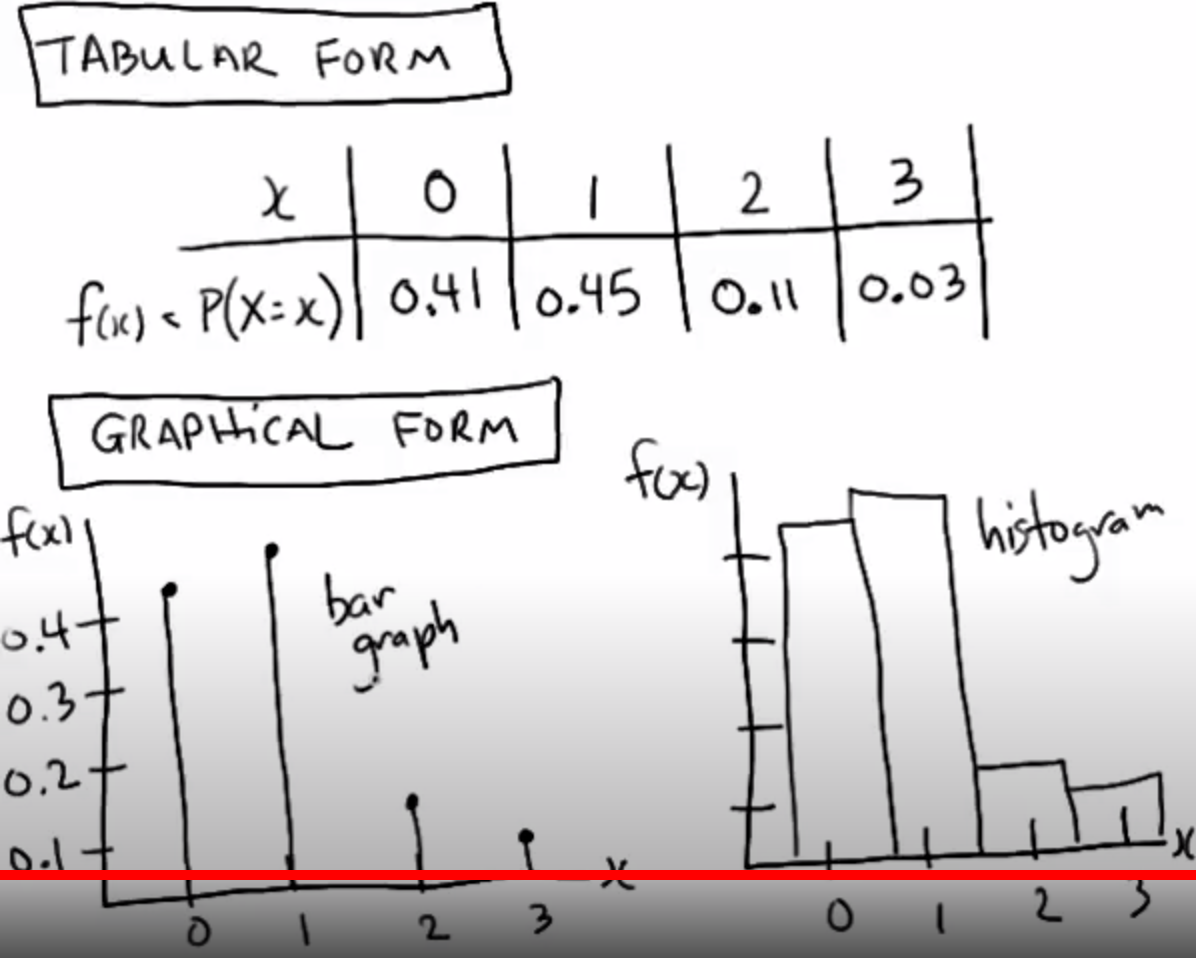 TABULAR FORM
x 0 1 2 3
f(x) = P(X=x) 0.41 0.45 0.11 0.03
GRAPHICAL FORM
f(x)
0.4
0.3
0.2
0.1
bar
graph
x
0 1 2 3
f(x)
histogram
x
0 1 2 3